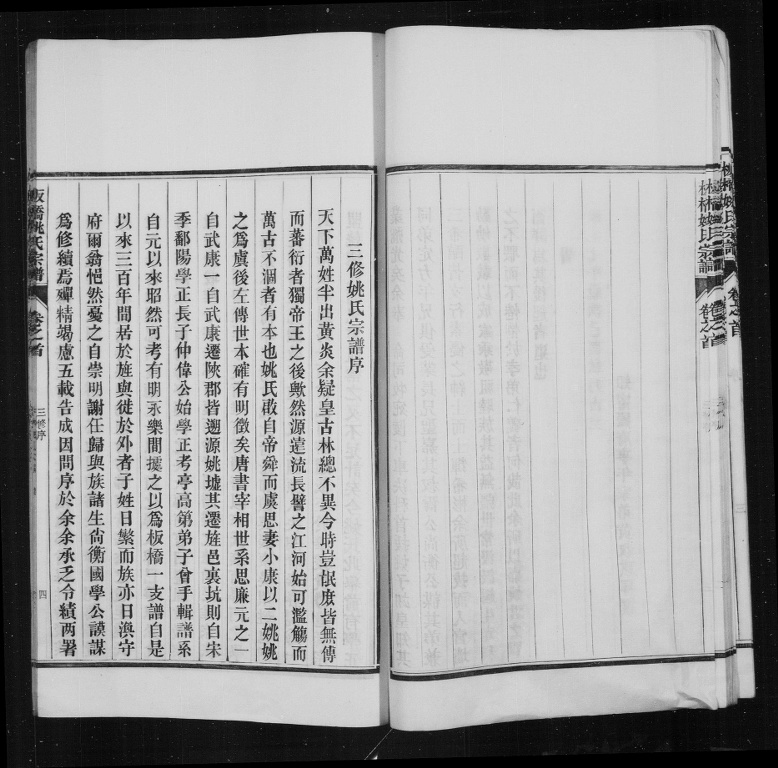 三修姚氏宗譜序
天下萬姓半出黃炎余疑皇古林總不異今時豈氓庶皆無傳
而蕃衍者獨帝王之後歟然源遠流長譬之江河始可濫觴而
萬古不涸者有本也姚氏啟自帝舜而虞思妻小康以二姚姚
之為虞後左傳世本確有明徵矣唐書宰相世系思廉元之一
自武康一自武康遷陝郡皆遡源姚墟其遷旌邑裏坑則自宋
季鄱陽學正長子仲偉公始學正考亭高第弟子曾手輯譜系
自元以來昭然可考有明永樂間攟之以為板橋一支譜自是
以來三百年間居於旌與徙於外者子姓日繁而族亦日渙守
府爾翁悒然憂之自崇明謝任歸與族諸生尙衡國學公謨謀
為修續焉殫精竭慮五載告成因問序於余余承乏令績兩署
板橋姚氏宗譜 卷之首 三修序 四
姚氏宗譜 卷之首